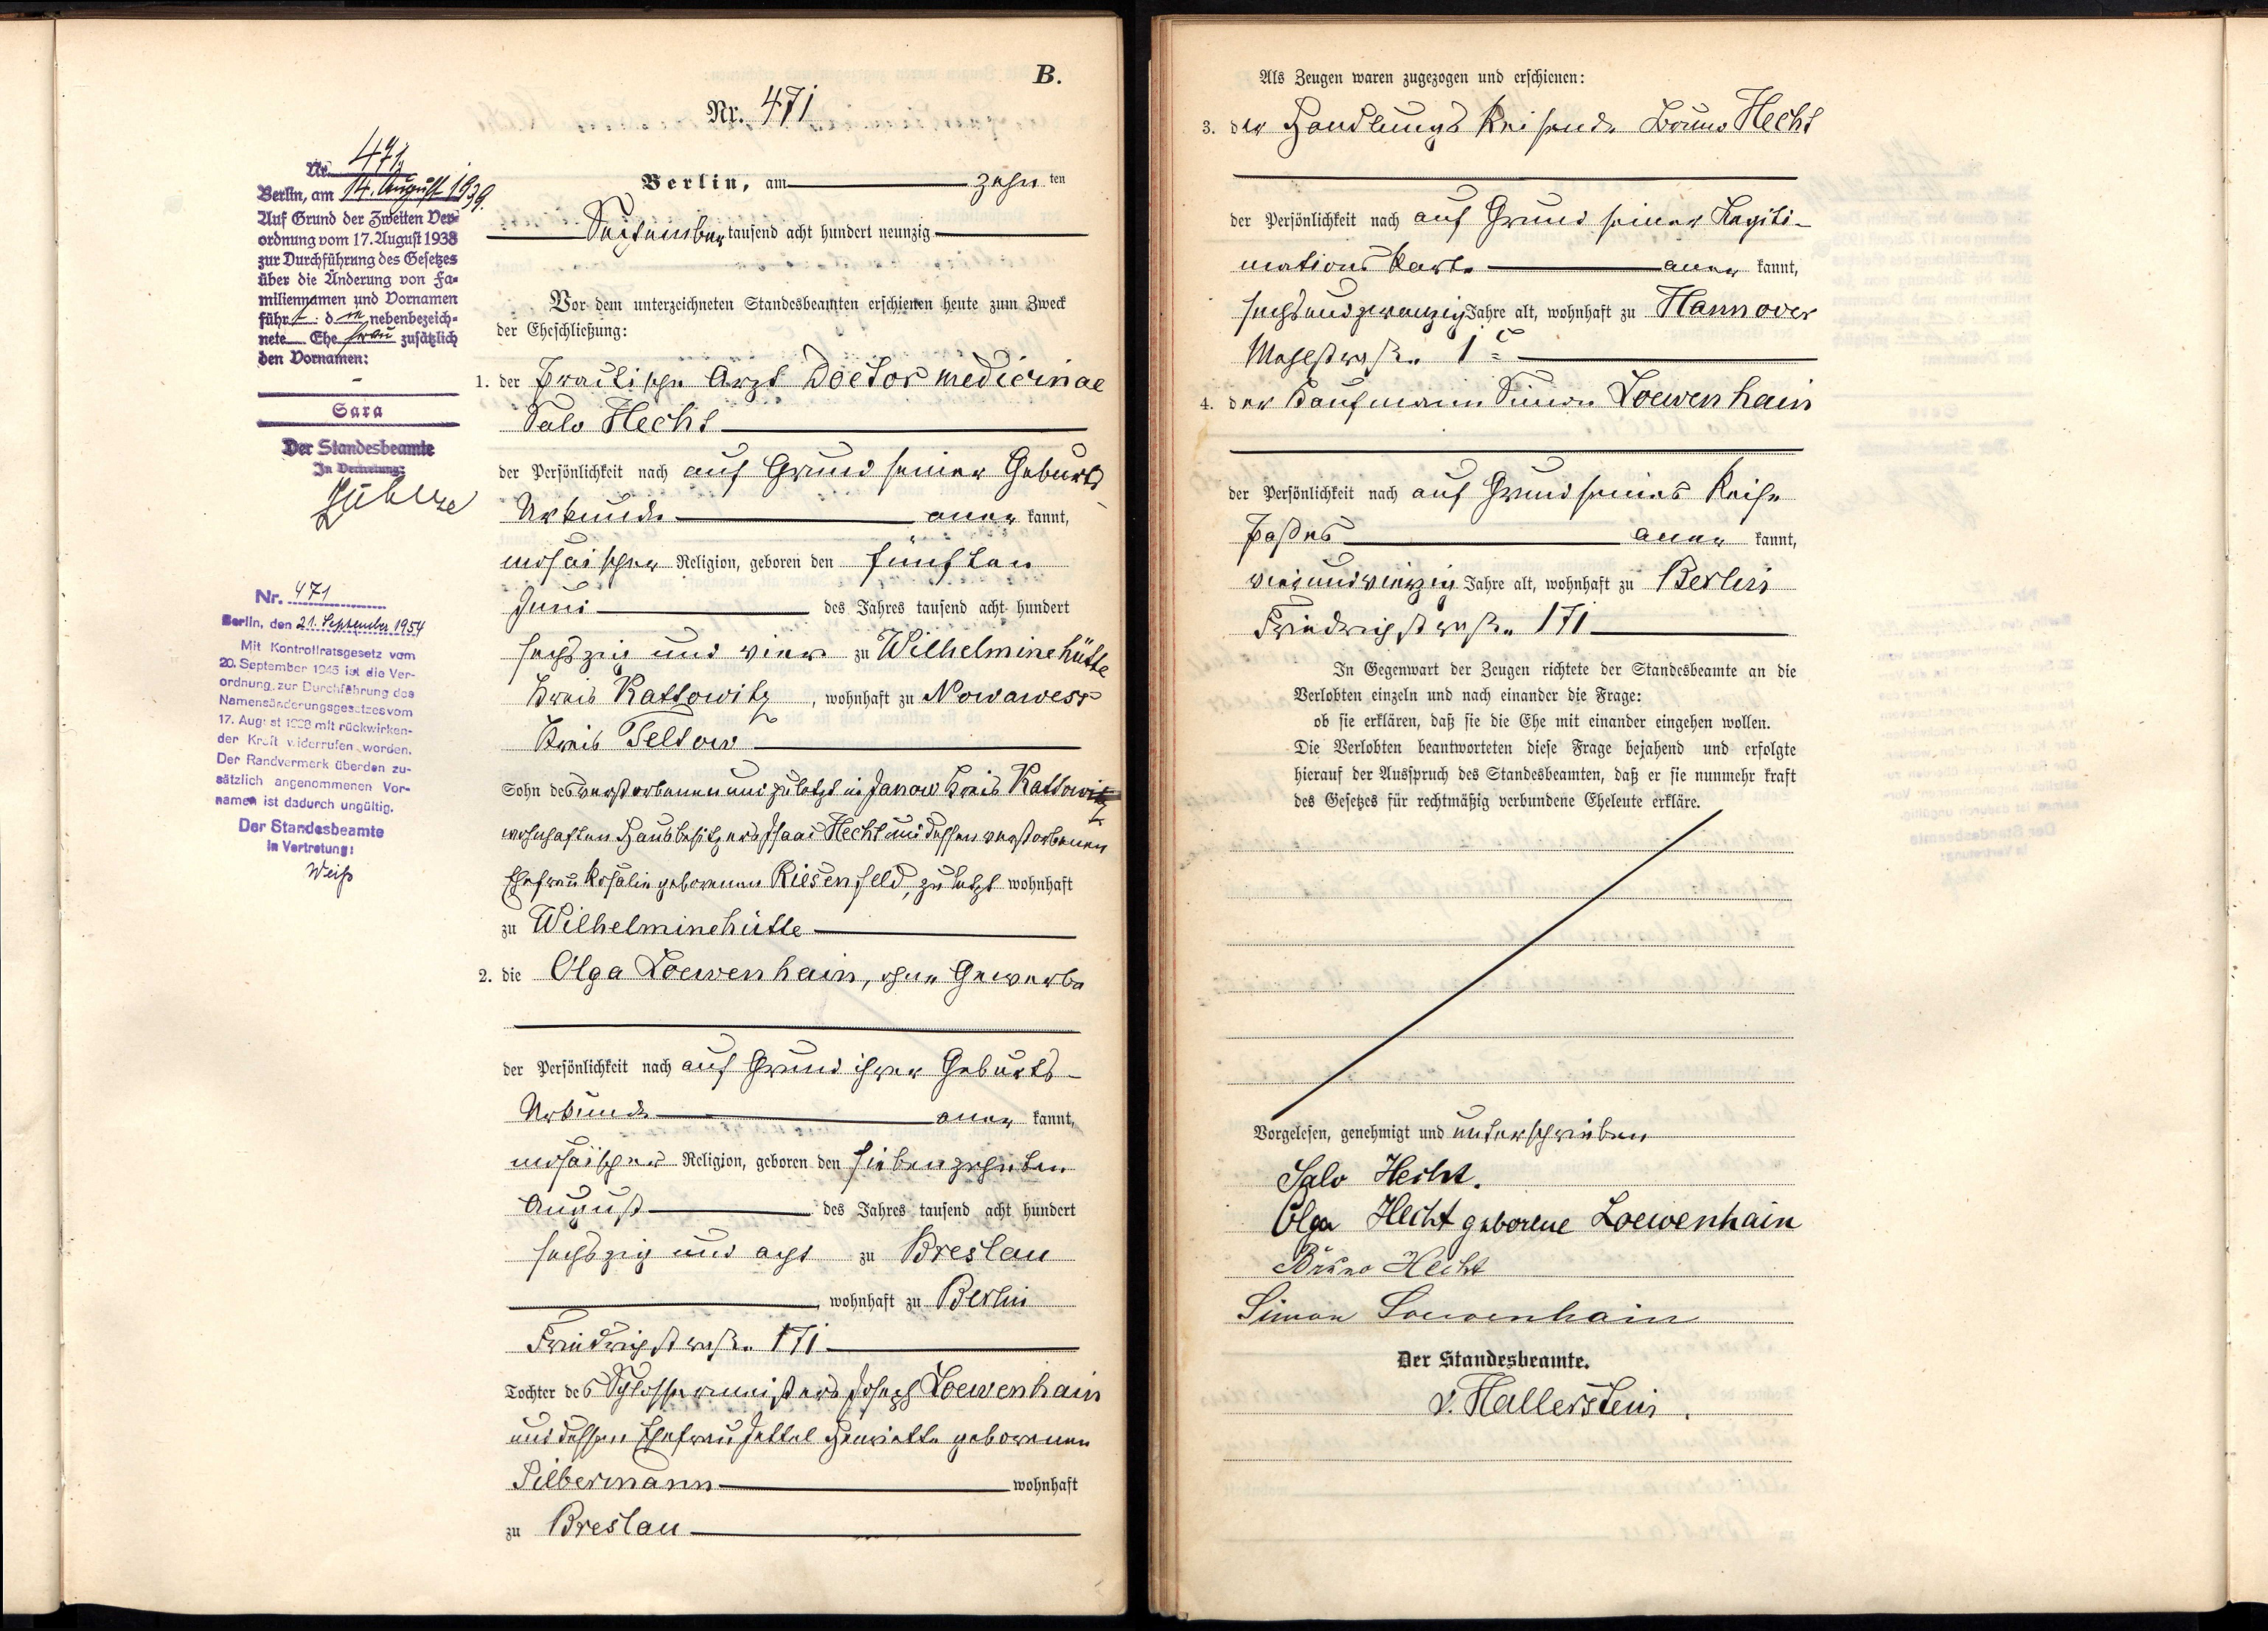 B.
Nr. 471
Nr. 471
Berlin, am 14. August 1939.
Auf Grund der Zweiten Ver-
ordnung vom 17. August 1938
zur Durchführung des Gesetzes
über die Änderung von Fa-
miliennamen und Vornamen
führt d nebenbezeich-
nete Ehefrau zusätzlich
den Vornamen:
-
Sara
Der Standesbeamte
In Vertretung:
Nr. 471
Berlin, den 21. September 1954
Mit Kontrollratsgesetz vom
20. September 1945 ist die Ver-
ordnung zur Durchführung des
Namensänderungsgesetzes vom
17. August 1938 mit rückwirken-
der Kraft widerrufen worden.
Der Randvermerk über den zu-
sätzlich angenommenen Vor-
namen ist dadurch ungültig.
Der Standesbeamte
In Vertretung:
Weiß
Berlin, am zehn ten
September tausend acht hundert neunzig
Vor dem unterzeichneten Standesbeamten erschienen heute zum Zweck
der Eheschließung:
1. der praktische Arzt Doctor medicinae
Salo Hecht
der Persönlichkeit nach auf Grund seiner Geburts-
Urkunde aner kannt,
mosaischer Religion, geboren den fünften
Juni des Jahres tausend acht hundert
sechszig und vier zu Wilhelminehütte
Kreis Kattowitz, wohnhaft zu Nowawess
Kreis Teltow
Sohn des verstorbenen und zuletzt in Janow Kreis Kattowitz
wohnhaften Hausbesitzers Isaac Hecht und dessen verstorbenen
Ehefrau Rosalie geborenen Riesenfeld, zuletzt wohnhaft
zu Wilhelminehütte
2. die Olga Loewenhain, ohne Gewerbe
der Persönlichkeit nach auf Grund ihrer Geburts-
Urkunde aner kannt,
mosaischer Religion, geboren den siebenzehnten
August des Jahres tausend acht hundert
sechszig und acht zu Breslau
, wohnhaft zu Berlin
Friedrichstraße 171
Tochter des Schlossermeisters Joseph Loewenhain
und dessen Ehefrau Jettel Henriette geborenen
Silbermann wohnhaft
zu Breslau
Als Zeugen waren zugezogen und erschienen:
3. der Handlungs Reisende Bruno Hecht
der Persönlichkeit nach auf Grund seiner Legiti-
mations Karte aner kannt,
sechsundzwanzig Jahre alt, wohnhaft zu Hannover
straße 1c
4. der Kaufmann Simon Loewenhain
der Persönlichkeit nach auf Grund seines Reise
Paßes aner kannt,
vierundvierzig Jahre alt, wohnhaft zu Berlin
Friedrichstraße 171
In Gegenwart der Zeugen richtete der Standesbeamte an die
Verlobten einzeln und nach einander die Frage:
ob sie erklären, daß sie die Ehe mit einander eingehen wollen.
Die Verlobten beantworteten diese Frage bejahend und erfolgte
hierauf der Ausspruch des Standesbeamten, daß er sie nunmehr kraft
des Gesetzes für rechtmäßig verbundene Eheleute erkläre.
Vorgelesen, genehmigt und unterschrieben
Salo Hecht.
Olga Hecht geborene Loewenhain
Bruno Hecht
Simon Loewenhain
Der Standesbeamte.
v. Hallerstein.